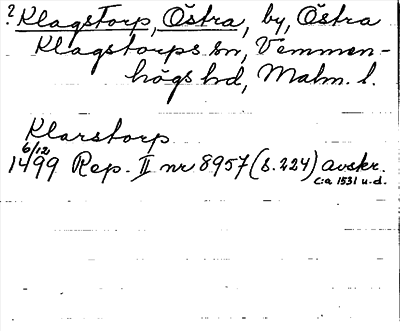 ? Klagstorp, Östra, by, Östra
Klagstorps sn, Vemmen-
högs hd, Malm. l.
Klarstorp
6/12
1499 Rep. II nr 8957 (s. 224) avskr.
c:a 1531 u.d.